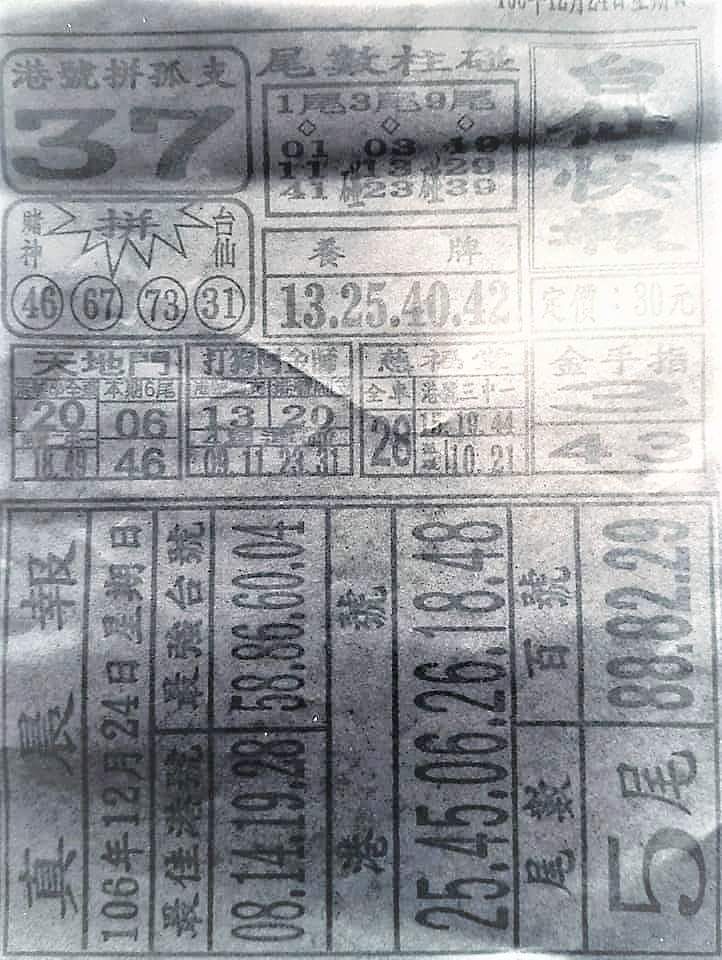 106年12月24日星期日
港號拼孤支
37
尾數柱碰
1尾3尾9尾
01 03 19
11 13 29
41碰23碰39
台仙快報
定價:30元
賭神 拼 台仙
46 67 73 31
養牌
13.25.40.42
天地門
本期6尾
20 06
18.49 46
打狗 金賭
13 20
09.11 23.31
慈福堂
全車 港號三中一
28 15.19.44
10.21
金手指
3
4 3
真晨報
106年12月24日星期日
最佳港號 最強台號
08.14.19.28 58.86.60.04
港號
25.45.06.26.18.48
尾數 百號
5尾 88.82.29